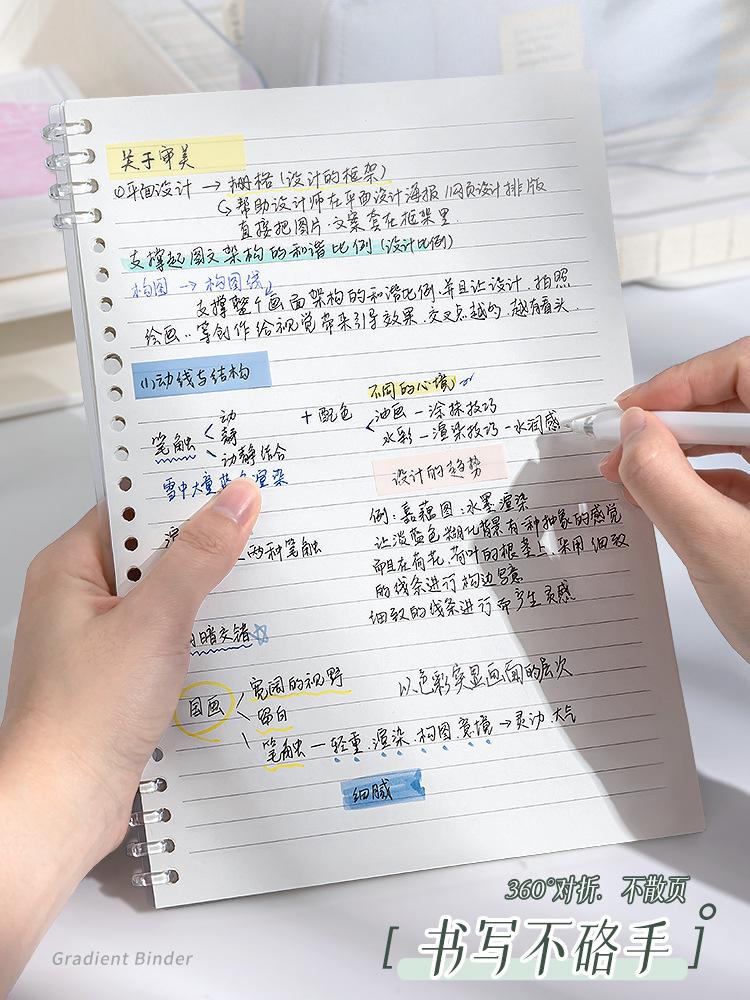 关于审美
①平面设计 → 栅格(设计的框架)
↳ 帮助设计师在平面设计海报 网页设计排版
直接把图片.文案套在框架里
支撑起图文架构的和谐比例(设计比例)
构图 → 构图线
支撑整个画面架构的和谐比例.并且让设计.拍照
绘画..等创作给视觉带来引导效果.交叉点越多.越有看头.
(1)动线与结构
不同的心境
笔触 < 动
静
动静结合
+ 配色
油画 - 涂抹技巧
水彩 - 渲染技巧 - 水润感
雪中大量蓝色渲染
设计的趋势
两种笔触
例:嘉藕图:水墨渲染
让淡蓝色糊化背景有一种抽象的感觉
而且在荷花.荷叶的根茎上.采用细致
的线条进行构边
细致的线条进行而产生灵感
明暗交错☆
国画 < 宽阔的视野
留白
笔触 - 轻重.渲染.构图.意境 → 灵动.大气
以色彩突显画面的层次
细腻
360°对折.不散页
[书写不硌手]
Gradient Binder